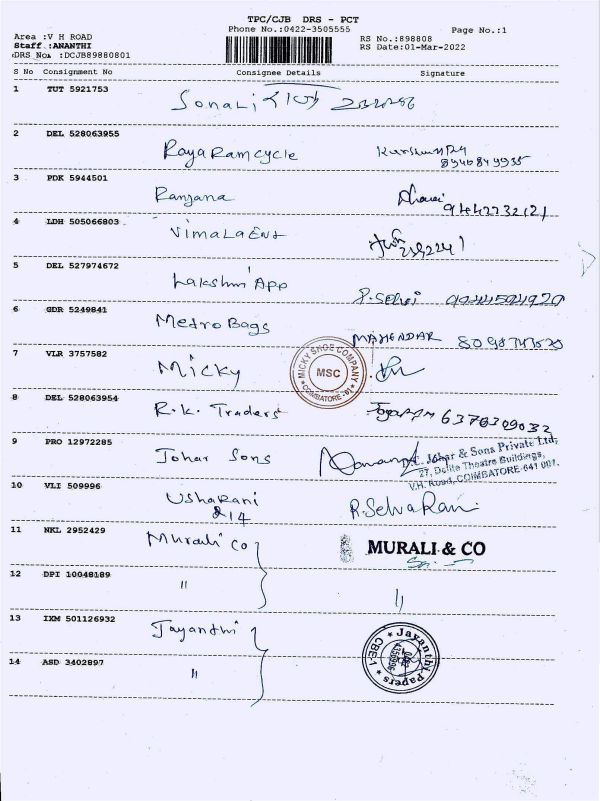 TPC/CJB DRS - PCT
Phone No.:0422-3505555
Page No.:1
Area :V H ROAD
Staff :ANANTHI
DRS No. :DCJB89880801
RS No.:898808
RS Date:01-Mar-2022
S No Consignment No Consignee Details Signature
1 TUT 5921753 Sonali
2 DEL 528063955 RayaRamcycle
8940849935
3 PDK 5944501 Ranjana
9442732121
4 LDH 505066803 Vimala Ent
5 DEL 527974672 Lakshmi App P.Selvi
6 GDR 5249841 Metro Bags MAHENDAR
7 VLR 3757582 Micky MICKY SHOE COMPANY MSC * COIMBATORE - 01 *
8 DEL 528063954 R.K. Traders 6370309032
9 PRO 12972285 Johar Sons
Johar & Sons Private Ltd,
27, Delite Theatre Buildings,
V.H. Road, COIMBATORE-641 001.
10 VLI 509996 UshaRani R.SelvaRani
214
11 NKL 2952429 Murali Co MURALI & CO
12 DPI 10048189 " "
13 IXM 501126932 Jayanthi
14 ASD 3402897 " * Jayanthi Papers * CBE-1